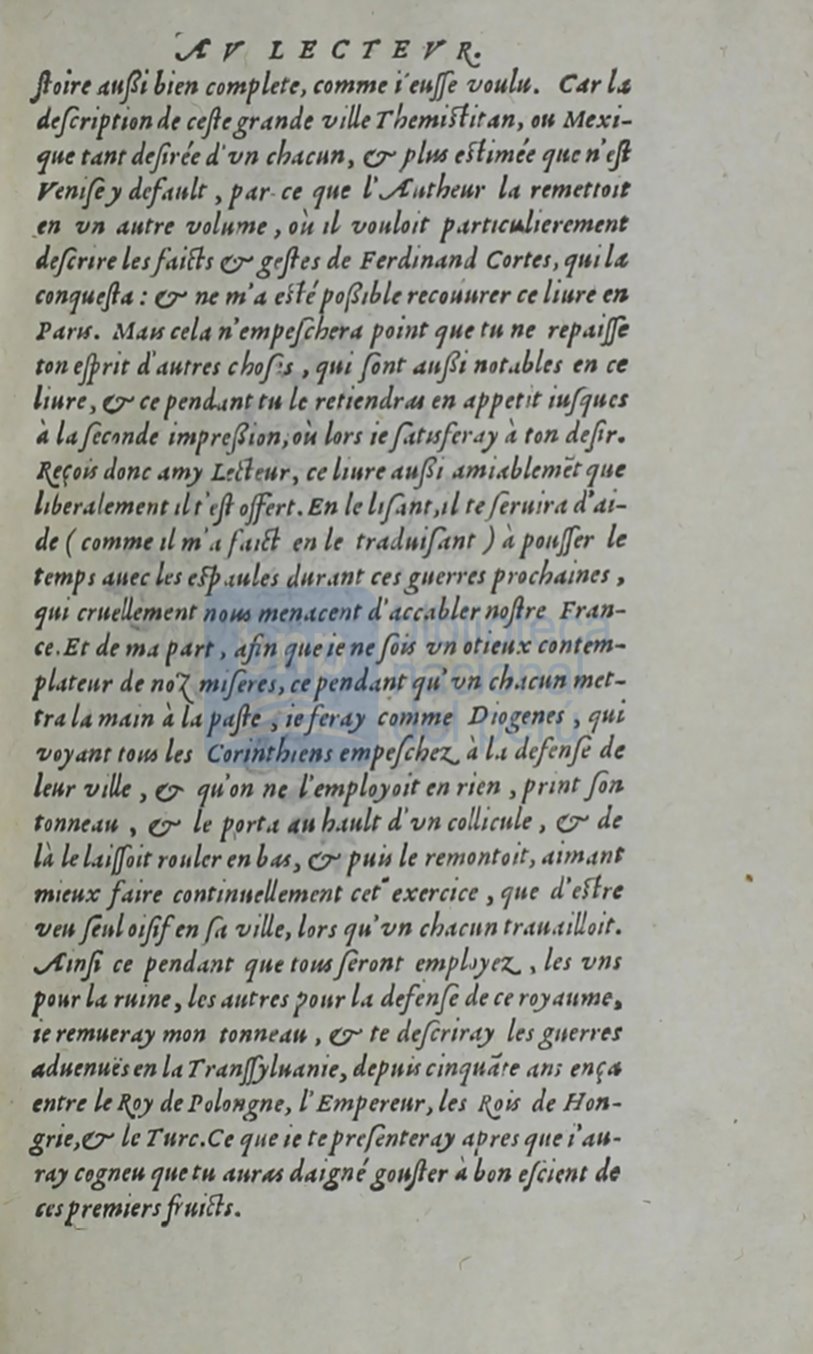 AV LECTEVR.
ſtoire außi bien complete, comme i'euſſe voulu. Car la
deſcription de ceſte grande ville Themiſtitan, ou Mexi-
que tant deſirée d'vn chacun, & plus eſtimée que n'eſt
Veniſe y default, par ce que l'Autheur la remettoit
en vn autre volume, où il vouloit particulierement
deſcrire les faicts & geſtes de Ferdinand Cortes, qui la
conqueſta : & ne m'a eſté poßible recouurer ce liure en
Paris. Mais cela n'empeſchera point que tu ne repaiſſe
ton eſprit d'autres choſes, qui ſont außi notables en ce
liure, & ce pendant tu le retiendras en appetit iuſques
à la ſeconde impreßion, où lors ie ſatisferay à ton deſir.
Reçois donc amy Lecteur, ce liure außi amiablemẽt que
liberalement il t'eſt offert. En le liſant, il te ſeruira d'ai-
de ( comme il m'a faict en le traduiſant ) à pouſſer le
temps auec les eſpaules durant ces guerres prochaines,
qui cruellement nous menacent d'accabler noſtre Fran-
ce. Et de ma part, afin que ie ne ſois vn otieux contem-
plateur de noz miſeres, ce pendant qu'vn chacun met-
tra la main à la paſte, ie feray comme Diogenes, qui
voyant tous les Corinthiens empeſchez à la defenſe de
leur ville, & qu'on ne l'employoit en rien, print ſon
tonneau, & le porta au hault d'vn collicule, & de
là le laiſſoit rouler en bas, & puis le remontoit, aimant
mieux faire continuellement cet exercice, que d'eſtre
veu ſeul oiſif en ſa ville, lors qu'vn chacun trauailloit.
Ainſi ce pendant que tous ſeront employez, les vns
pour la ruine, les autres pour la defenſe de ce royaume,
ie remueray mon tonneau, & te deſcriray les guerres
aduenuës en la Tranſſyluanie, depuis cinquãte ans ença
entre le Roy de Polongne, l'Empereur, les Rois de Hon-
grie, & le Turc. Ce que ie te preſenteray apres que i'au-
ray cogneu que tu auras daigné gouſter à bon eſcient de
ces premiers fruicts.